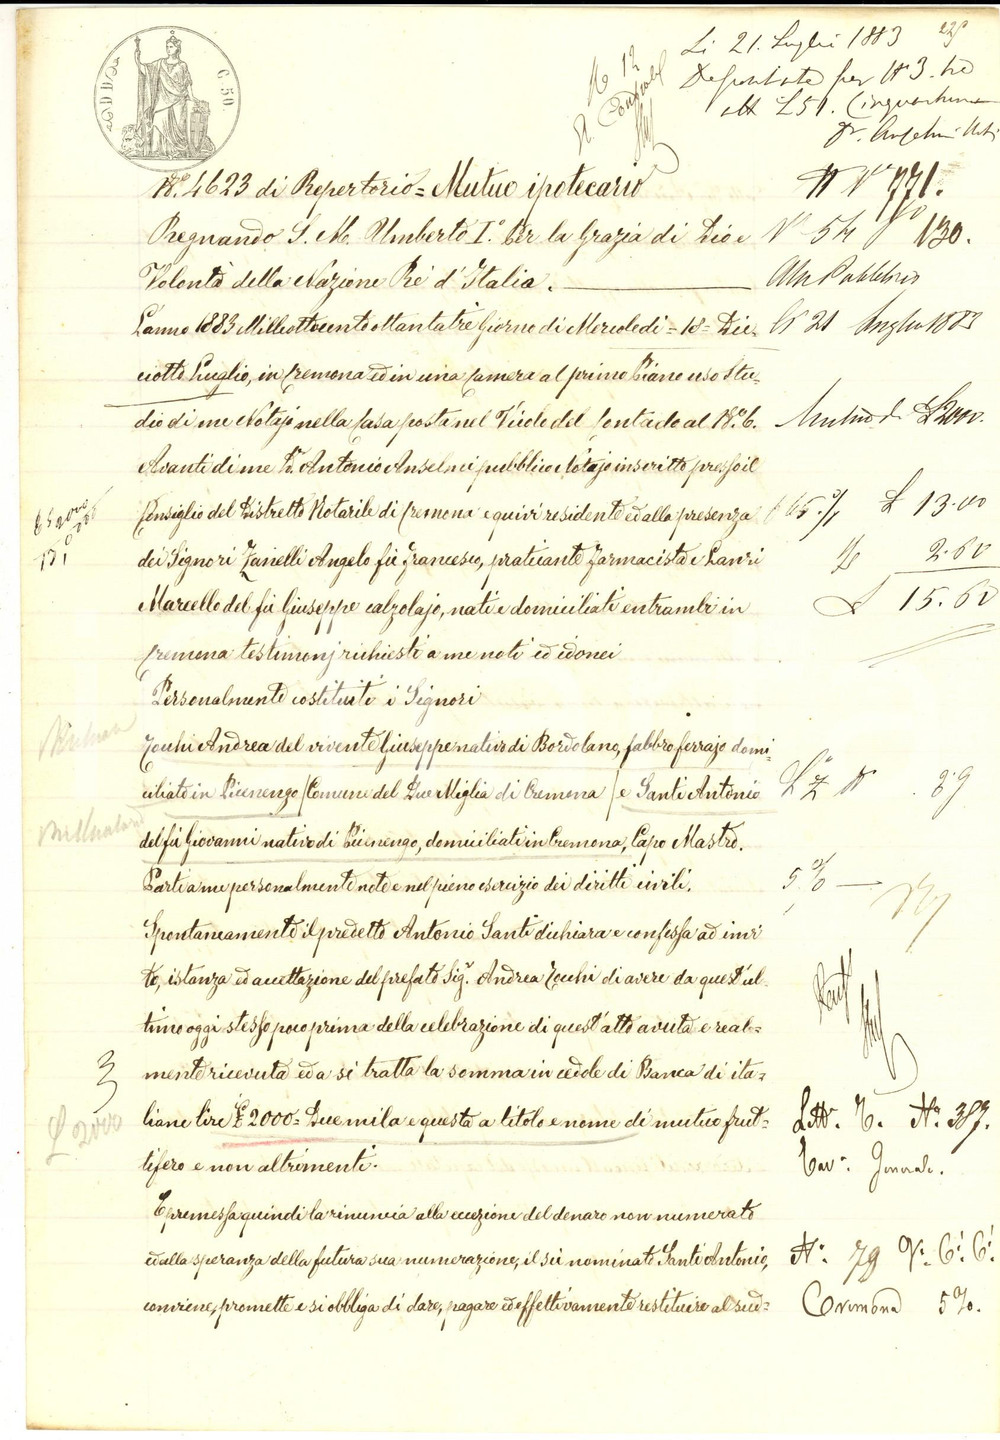 C. 50
Li 21. Luglio 1883
Depositate per N° 3. tre
L 51. Cinquantuna
Dr. Anselmi
N° 12
N° 4623 di Repertorio = Mutuo ipotecario
N° 771.
Regnando S. M. Umberto I.° per la Grazia di Dio e
N° 54 130.
Volontà della Nazione Rè d'Italia.
L'anno 1883 Milleottocentottantatre Giorno di Mercoledì = 18 = Die=
li 21 luglio 1883
ciotto Luglio, in Cremona ed in una Camera al primo Piano uso Stu=
dio di me Notajo nella Casa posta nel Vicolo del Contado al N°. 6.
Mutuo di L 2000.
Avanti di me Dr. Antonio Anselmi pubblico Notajo inscritto presso il
Consiglio del Distretto Notarile di Cremona e quivi residente ed alla presenza
65 % L 13.00
dei Signori Zanelli Angelo fu Francesco, praticante Farmacista e Lanri
2.60
Marcello del fu Giuseppe calzolajo, nati e domiciliati entrambi in
L 15.60
Cremona testimonj richiesti a me noti ed idonei
Personalmente costituiti i Signori
Zocchi Andrea del vivente Giuseppe nativo di Bordolano, fabbro ferrajo domi=
ciliato in Picenengo / Comune del Due Miglia di Cremona / e Santi Antonio
89
del fu Giovanni nativo di Picenengo, domiciliati in Cremona, Capo Mastro.
Parti a me personalmente note e nel pieno esercizio dei diritti civili.
5 %
Spontaneamente il predetto Antonio Santi dichiara e confessa ad invi
to, istanza ed accettazione del prefato Sig.r Andrea Zocchi di avere da quest'ul=
timo oggi stesso poco prima della celebrazione di quest'atto avuta e real=
mente ricevuta ed a sì tratta la somma in cedole di Banca di ita=
3
liane lire L 2000= Duemila e questa a titolo e nome di mutuo frut=
L 2000
N°. 383.
tifero e non altrimenti.
Generale.
E premessa quindi la rinuncia alla eccezione del denaro non numerato
ed alla speranza della futura sua numerazione, il sù nominato Santi Antonio,
N°. 79
conviene, promette e si obbliga di dare, pagare ed effettivamente restituire al sud=
Cremona 570.